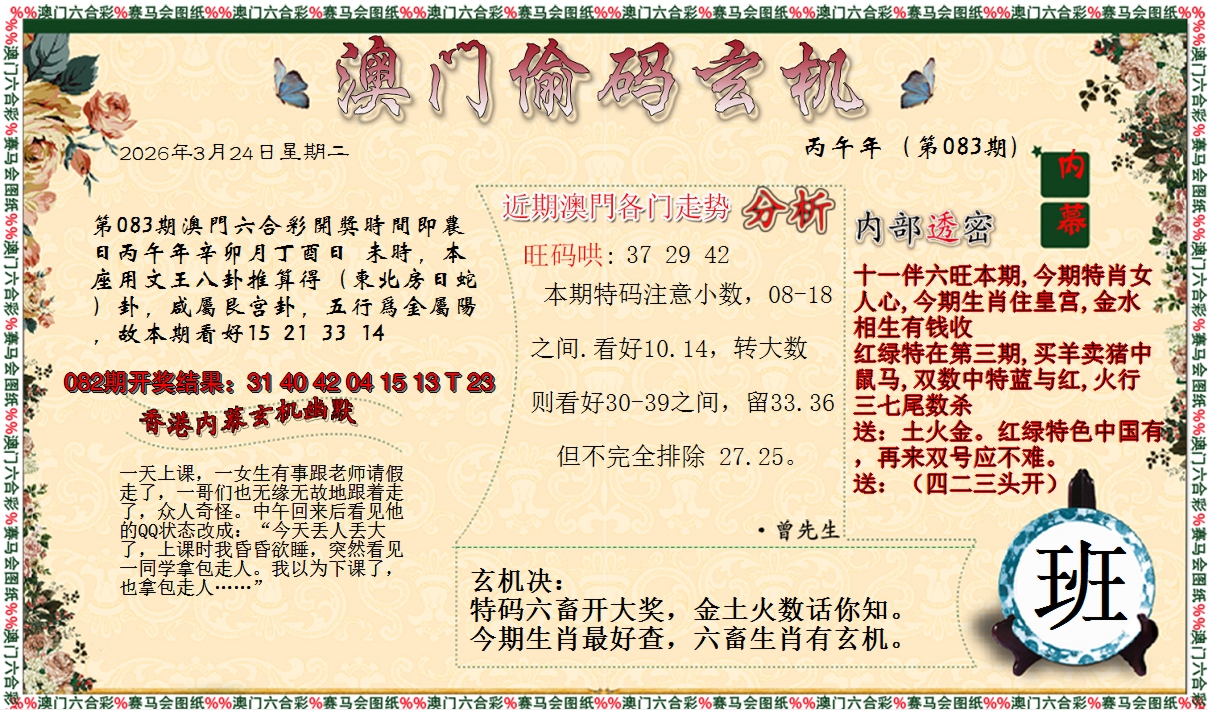 %%澳门六合彩%赛马会图纸%%澳门六合彩%赛马会图纸%%澳门六合彩%赛马会图纸%%澳门六合彩%赛马会图纸%%澳门六合彩%赛马会图纸%%澳门六合彩%赛马会图纸%%
澳门偷码玄机
2026年3月24日星期二
丙午年（第083期）
第083期澳門六合彩開獎時間即農
日丙午年辛卯月丁酉日 未時，本
座用文王八卦推算得（東北房日蛇
）卦，咸屬艮宫卦，五行爲金屬陽
，故本期看好15 21 33 14
082期开奖结果：31 40 42 04 15 13 T 23
香港内幕玄机幽默
一天上课，一女生有事跟老师请假
走了，一哥们也无缘无故地跟着走
了，众人奇怪。中午回来后看见他
的QQ状态改成：“今天丢人丢大
了，上课时我昏昏欲睡，突然看见
一同学拿包走人。我以为下课了，
也拿包走人……”
近期澳門各门走势 分析
旺码哄: 37 29 42
本期特码注意小数，08-18
之间.看好10.14，转大数
则看好30-39之间，留33.36
但不完全排除 27.25。
·曾先生
玄机决：
特码六畜开大奖，金土火数话你知。
今期生肖最好查，六畜生肖有玄机。
内幕
内部透密
十一伴六旺本期,今期特肖女
人心,今期生肖住皇宫,金水
相生有钱收
红绿特在第三期,买羊卖猪中
鼠马,双数中特蓝与红,火行
三七尾数杀
送：土火金。红绿特色中国有
，再来双号应不难。
送：（四二三头开）
班
%%澳门六合彩%赛马会图纸%%澳门六合彩%赛马会图纸%%澳门六合彩%赛马会图纸%%澳门六合彩%赛马会图纸%%澳门六合彩%赛马会图纸%%澳门六合彩%赛马会图纸%%